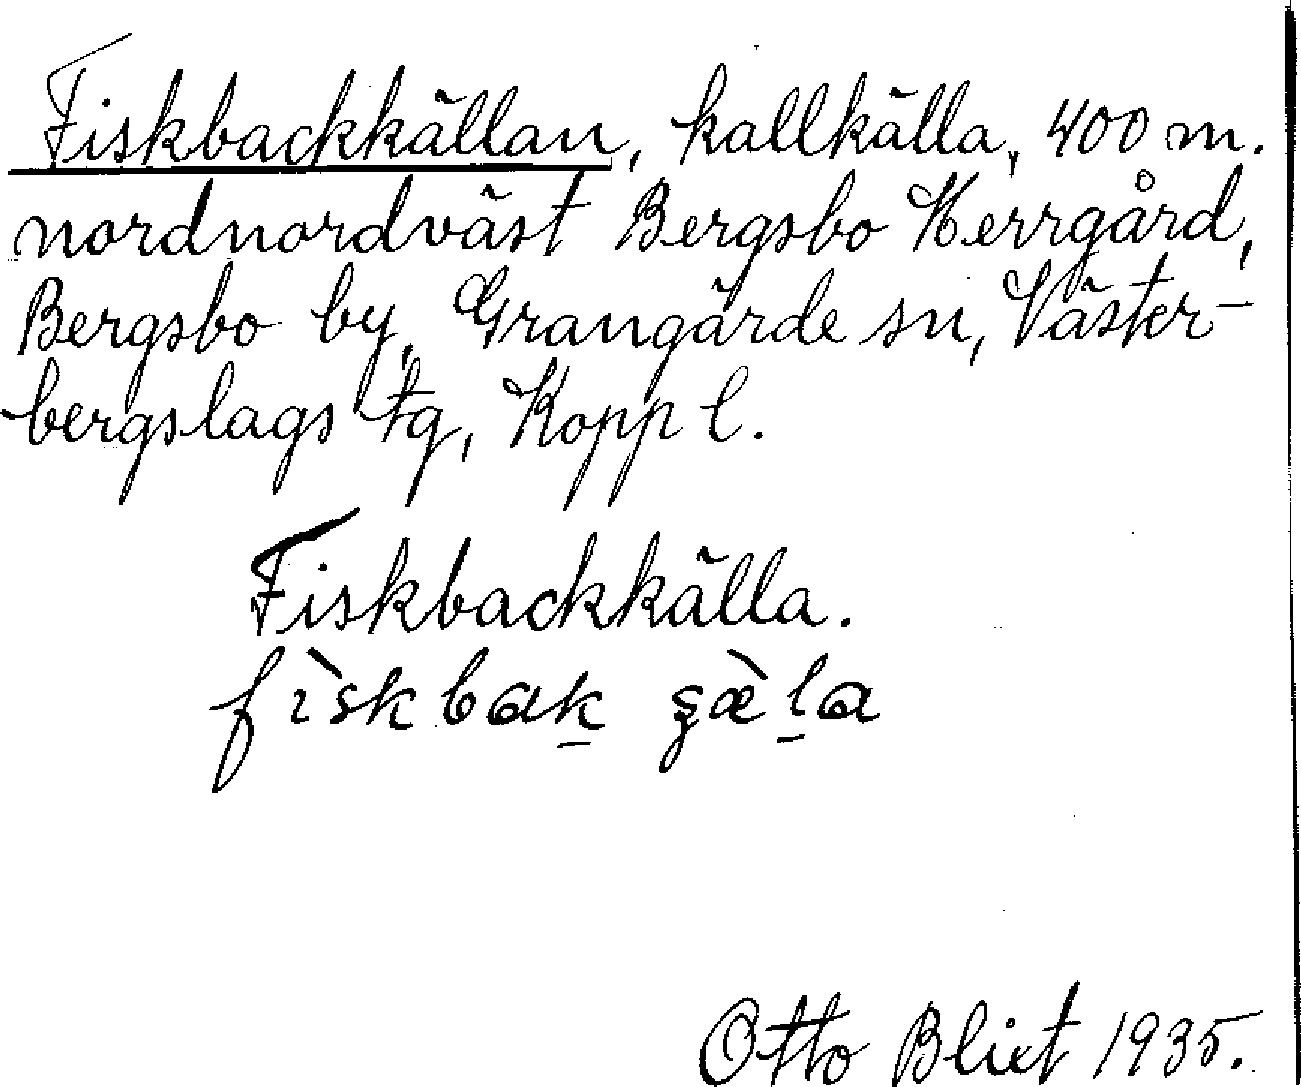 Fiskbackkällan, kallkälla, 400 m.
nordnordväst Bergsbo Herrgård,
Bergsbo by, Grangärde sn, Väster-
bergslags tg, Kopp l.
Fiskbackkälla.
fìskbak̲ şæ̀l̲a
Otto Blixt 1935.